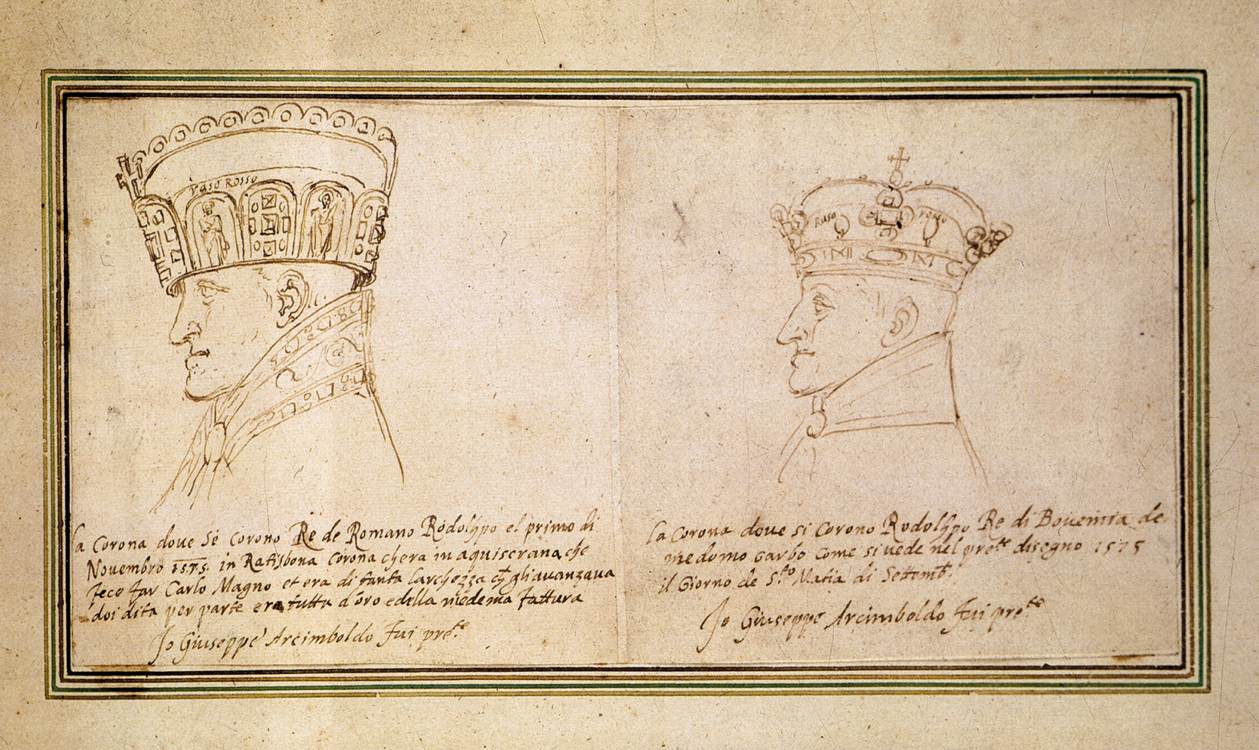 Raso Rosso
Raso
roso
la Corona doue Sé Corono Re de Romano Rodolfo el primo di
Nouembro 1575. in Ratisbona Corona chera in aquisgrana che
fece far Carlo Magno et era di tanta larghezza che gli auanzaua
doi dita per parte era tutta d'oro e della medema fattura
Io Giuseppe Arcimboldo fui pre.te
la Corona doue si Corono Rodolfo Re di Bouemia de
medomo garbo Come si vede nel pre.te disegno 1575
il Giorno de S.to Matia di Settemb.
Io Giuseppe Arcimboldo fui pre.te